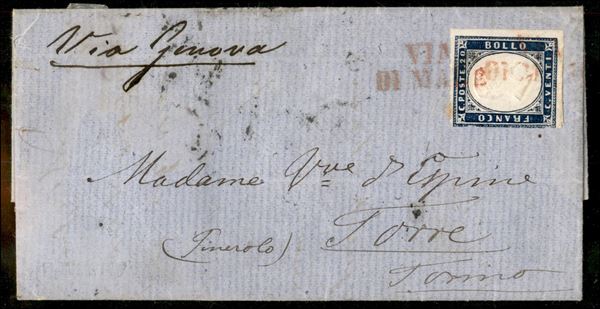 Via Genova
VIA
DI MA
BOLLO
C. POSTE 20
C. VENTI
FRANCO
Madame Vve d'Espine
(Pinerolo) Torre
Torino